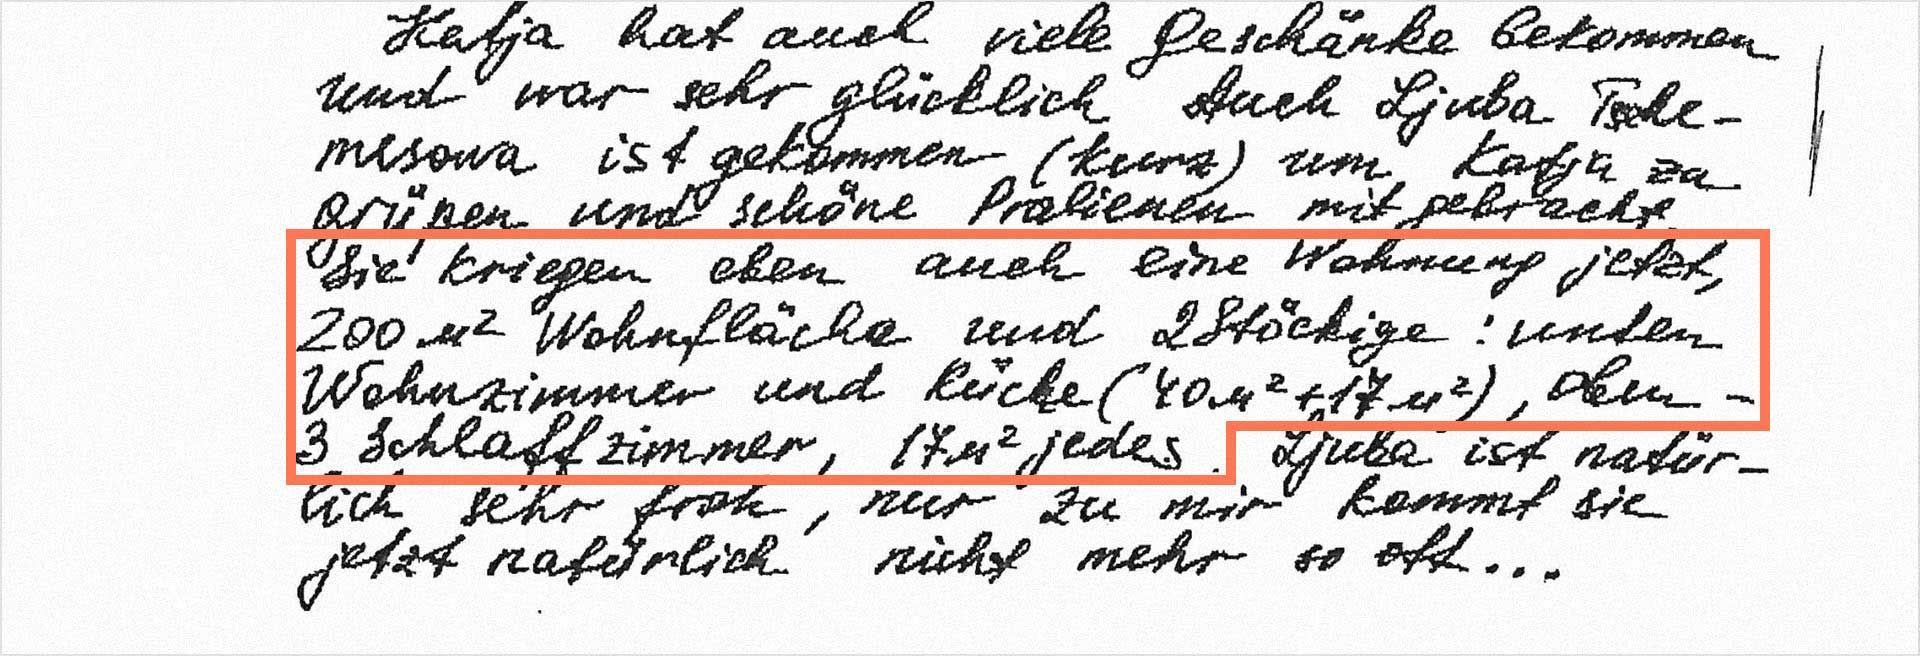 Katja hat auch viele Geschänke bekommen
und war sehr glücklich Auch Ljuba Tsche-
mesowa ist gekommen (kurz) um Katja zu
grüßen und schöne Pralienen mit gebracht.
Sie kriegen eben auch eine Wohnung jetzt,
200 м² Wohnfläche und 2 Stöckige : unten
Wohnzimmer und Kücke (40 м² + 17 м²), oben -
3 Schlaffzimmer, 17 м² jedes. Ljuba ist natür-
lich sehr froh, nur zu mir kommt sie
jetzt natürlich nicht mehr so oft...